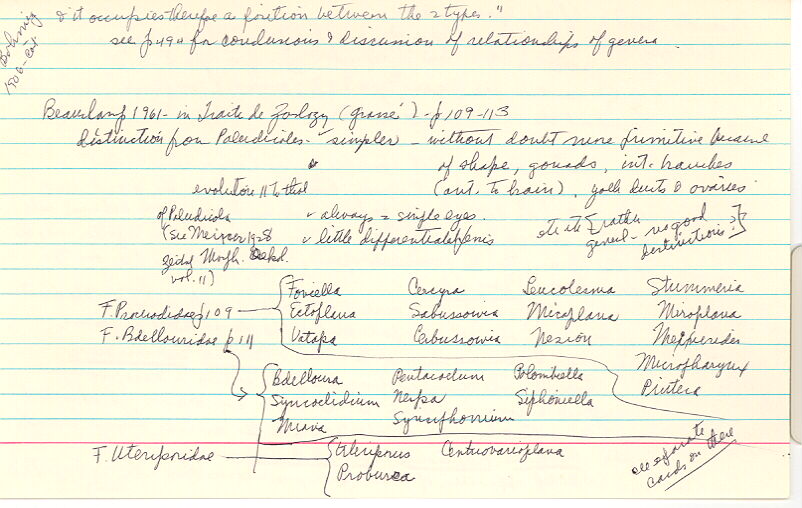 & it occupies therefore a position between the 2 types."
see p 494 for conclusions & discussion of relationships of genera
Böhmig
1906-cont.
Beauchamp 1961 - in Traite de Zoology (Grassé) - p 109-113
distinction from Paludicoles - "simpler - without doubt more primitive because
of shape, gonads, int. branches
(ant. to brain), yolk ducts & ovaries
evolution || to that
of Paludicola
(see Meixner 1928
Zeitsch Morph. Oekol.
vol. 11)
✓ always 2 single eyes.
✓ little differentiated penis
etc etc [rather
general - no good
distinctions?]
F. Procerodidae p 109
Foviella Cercyra Leucolesma Stummeria
Ectoplana Sabussowia Miroplana
Vatapa Cerbussowia Nesion
Micropharynx
F. Bdellouridae p 111
Bdelloura Pentacoelum Palombiella
Syncoelidium Nerpa Siphoniella
Miava Synsiphonium
F. Uteriporidae
Uteriporus Centrovarioplana
Probursa
see separate
cards on these